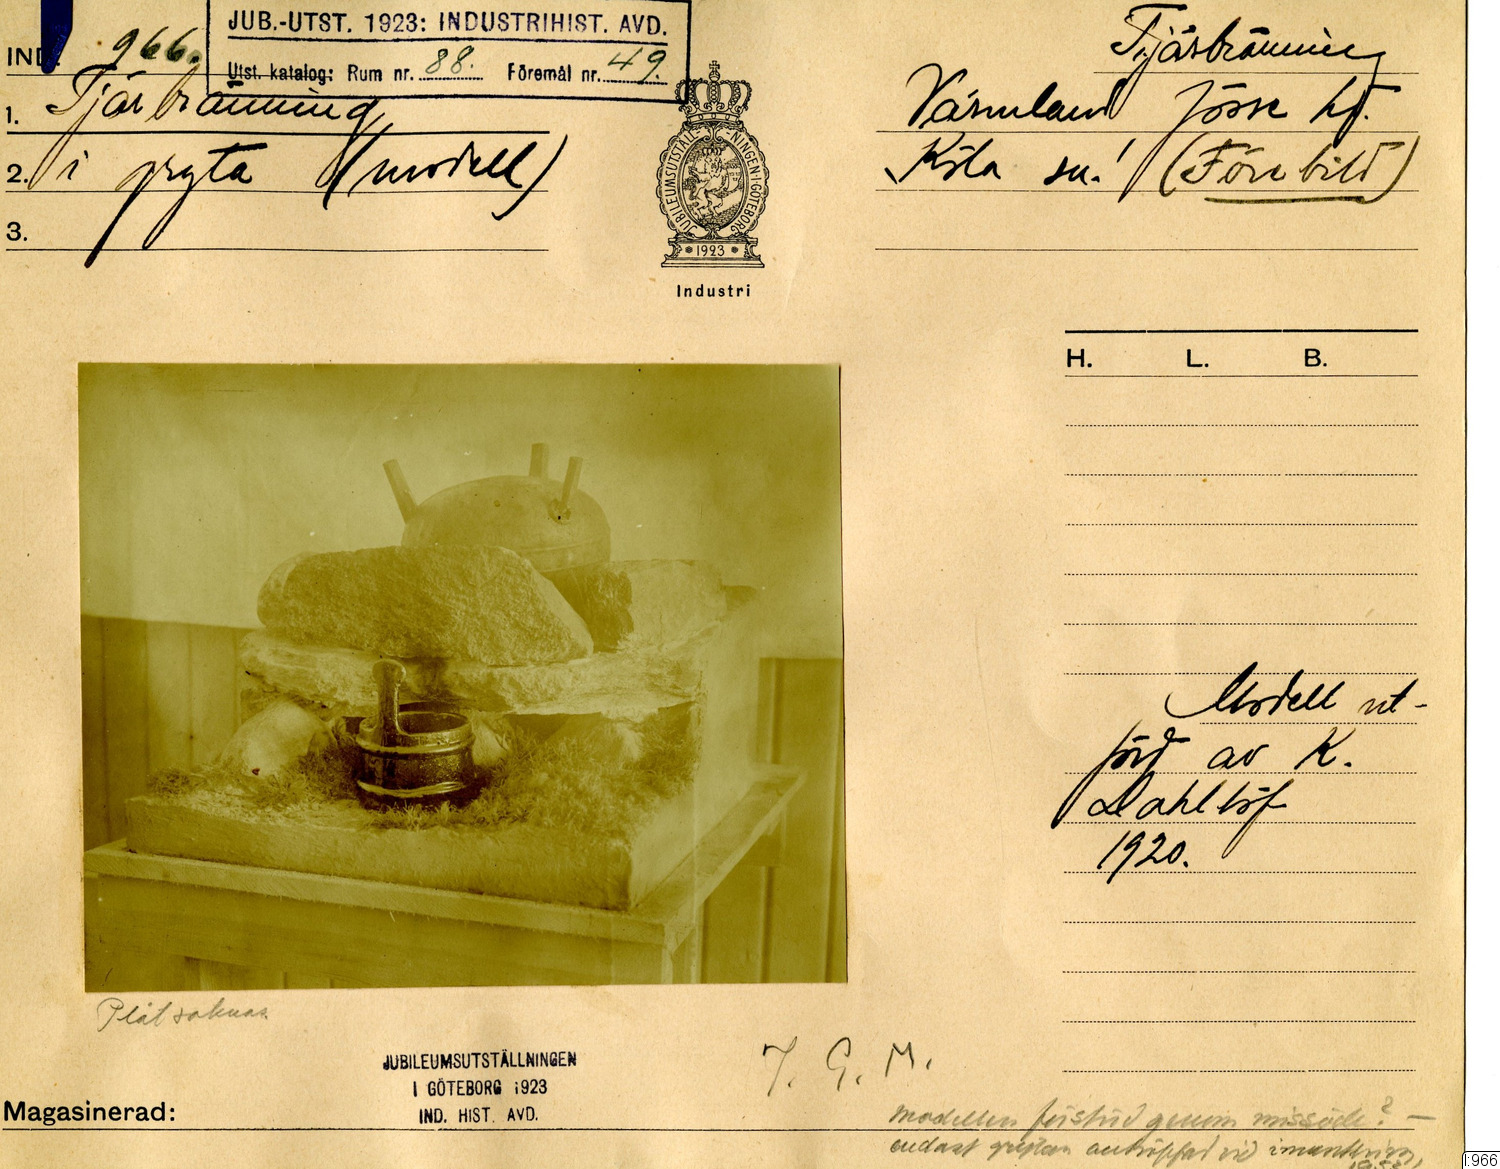 JUB.-UTST. 1923: INDUSTRIHIST. AVD.
Utst. katalog: Rum nr. 88. Föremål nr. 49.
IND. 966.
1. Tjärbränning
2. i gryta (modell)
3.
JUBILEUMSUTSTÄLLNINGEN·I·GÖTEBORG
*1923*
Industri
Tjärbränning
Värmland Jösse hd.
Köla sn. (Förebild)
H. L. B.
Modell ut-
förd av K.
Dahllöf
1920.
Plåt saknas.
JUBILEUMSUTSTÄLLNINGEN
I GÖTEBORG 1923
IND. HIST. AVD.
T. G. M.
Magasinerad:
Modellen förstörd genom missöde? —
endast grytan anträffad vid
1966